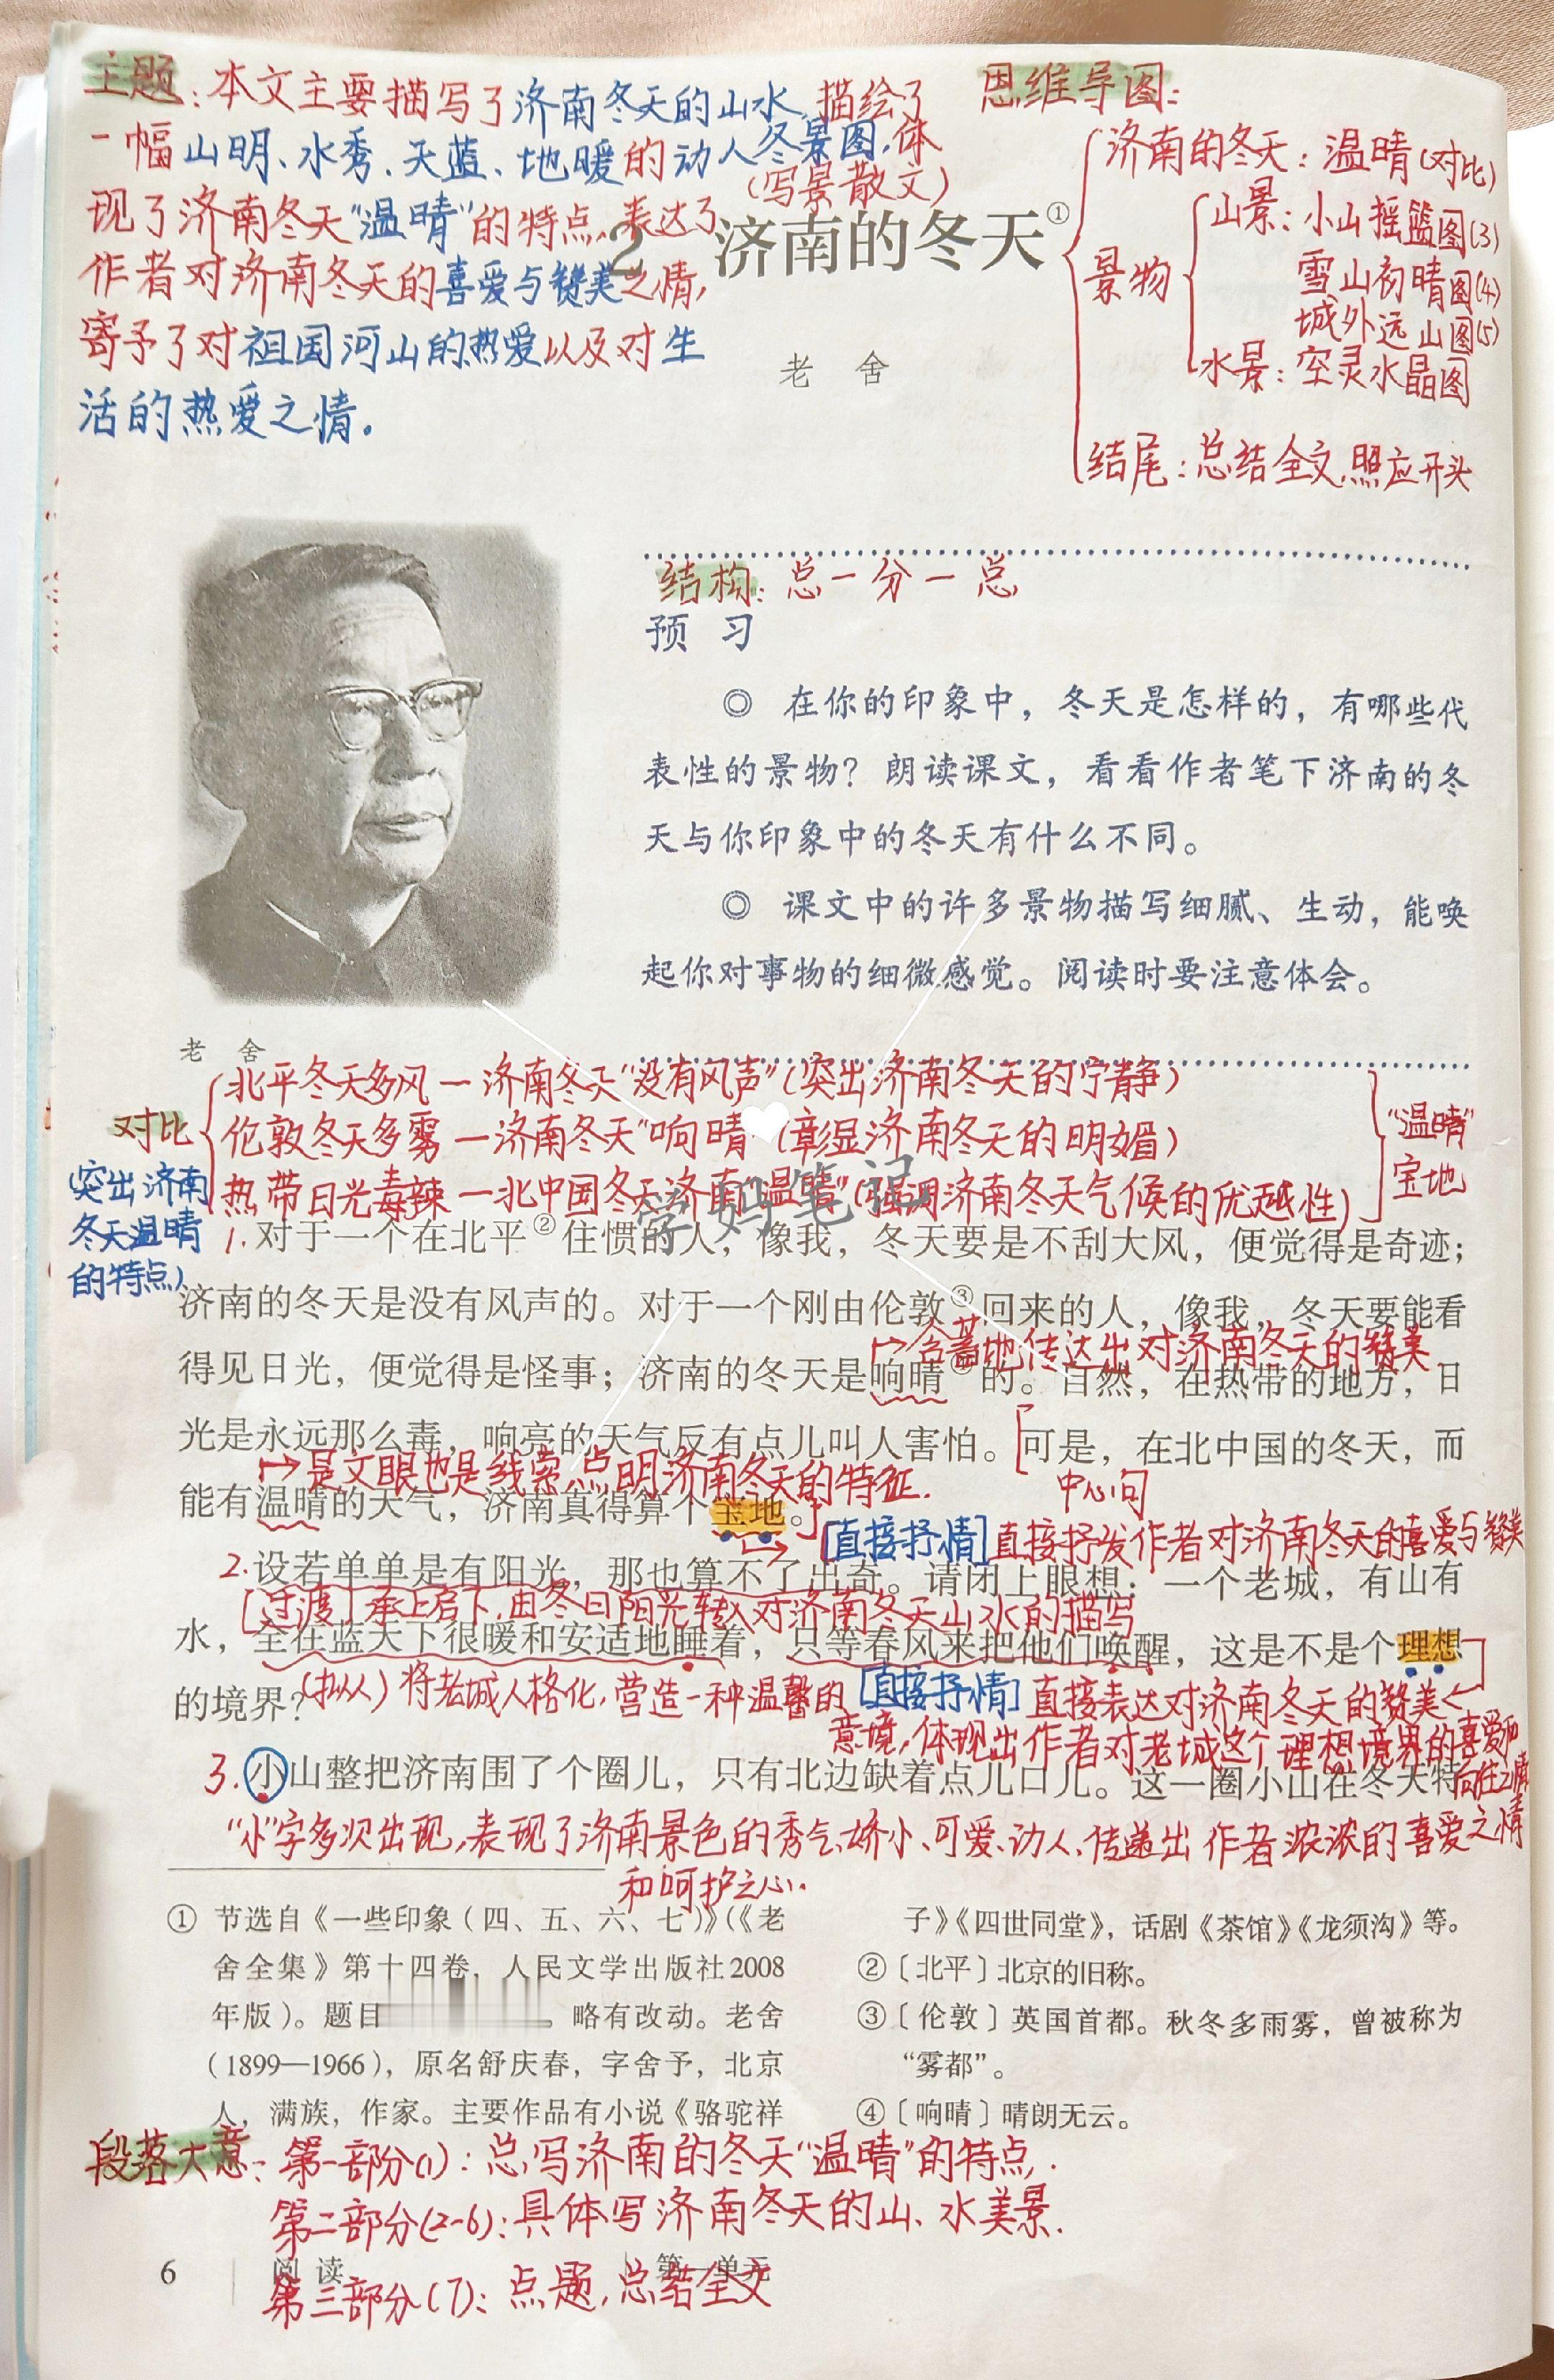 主题:本文主要描写了济南冬天的山水,描绘了
一幅山明、水秀、天蓝、地暖的动人冬景图,体
现了济南冬天“温晴”的特点,表达了
作者对济南冬天的喜爱与赞美之情,
寄予了对祖国河山的热爱以及对生
活的热爱之情.
思维导图:
济南的冬天:温晴(对比)
景物
山景:小山摇篮图(3)
雪山初晴图(4)
城外远山图(5)
水景:空灵水晶图
结尾:总结全文,照应开头
(写景散文)
2 济南的冬天①
老 舍
结构:总一分一总
预 习
◎ 在你的印象中,冬天是怎样的,有哪些代
表性的景物?朗读课文,看看作者笔下济南的冬
天与你印象中的冬天有什么不同。
◎ 课文中的许多景物描写细腻、生动,能唤
起你对事物的细微感觉。阅读时要注意体会。
老 舍
对比
北平冬天多风一济南冬天“没有风声”(突出济南冬天的宁静)
伦敦冬天多雾一济南冬天“响晴”(彰显济南冬天的明媚)
热带日光毒辣一北中国冬天济南“温晴”(强调济南冬天气候的优越性)
“温晴”
宝地
(突出济南
冬天温晴
的特点)
学妈笔记
1.对于一个在北平②住惯的人,像我,冬天要是不刮大风,便觉得是奇迹;
济南的冬天是没有风声的。对于一个刚由伦敦③回来的人,像我,冬天要能看
含蓄地传达出对济南冬天的赞美
得见日光,便觉得是怪事;济南的冬天是响晴④的。自然,在热带的地方,日
光是永远那么毒,响亮的天气反有点儿叫人害怕。[可是,在北中国的冬天,而
是文眼也是线索,点明济南冬天的特征.
中心句
能有温晴的天气,济南真得算个宝地。]
[直接抒情]直接抒发作者对济南冬天的喜爱与赞美
2.设若单单是有阳光,那也算不了出奇。请闭上眼想:一个老城,有山有
[过渡]承上启下,由冬日阳光转入对济南冬天山水的描写
水,全在蓝天下很暖和安适地睡着,只等春风来把他们唤醒,这是不是个理想
的境界?
(拟人)将老城人格化,营造一种温馨的
意境,体现出作者对老城这个理想境界的喜爱和
向往之情
[直接抒情]直接表达对济南冬天的赞美
3.小山整把济南围了个圈儿,只有北边缺着点儿口儿。这一圈小山在冬天特
“小”字多次出现,表现了济南景色的秀气、娇小、可爱、动人,传递出作者浓浓的喜爱之情
和呵护之心.
① 节选自《一些印象(四、五、六、七)》(《老
舍全集》第十四卷,人民文学出版社2008
年版)。题目
略有改动。老舍
(1899—1966),原名舒庆春,字舍予,北京
人,满族,作家。主要作品有小说《骆驼祥
子》《四世同堂》,话剧《茶馆》《龙须沟》等。
②〔北平〕北京的旧称。
③〔伦敦〕英国首都。秋冬多雨雾,曾被称为
“雾都”。
④〔响晴〕晴朗无云。
段落大意:第一部分(1):总写济南的冬天“温晴”的特点.
第二部分(2-6):具体写济南冬天的山、水美景.
第三部分(7):点题,总结全文
6 阅 读 第一单元